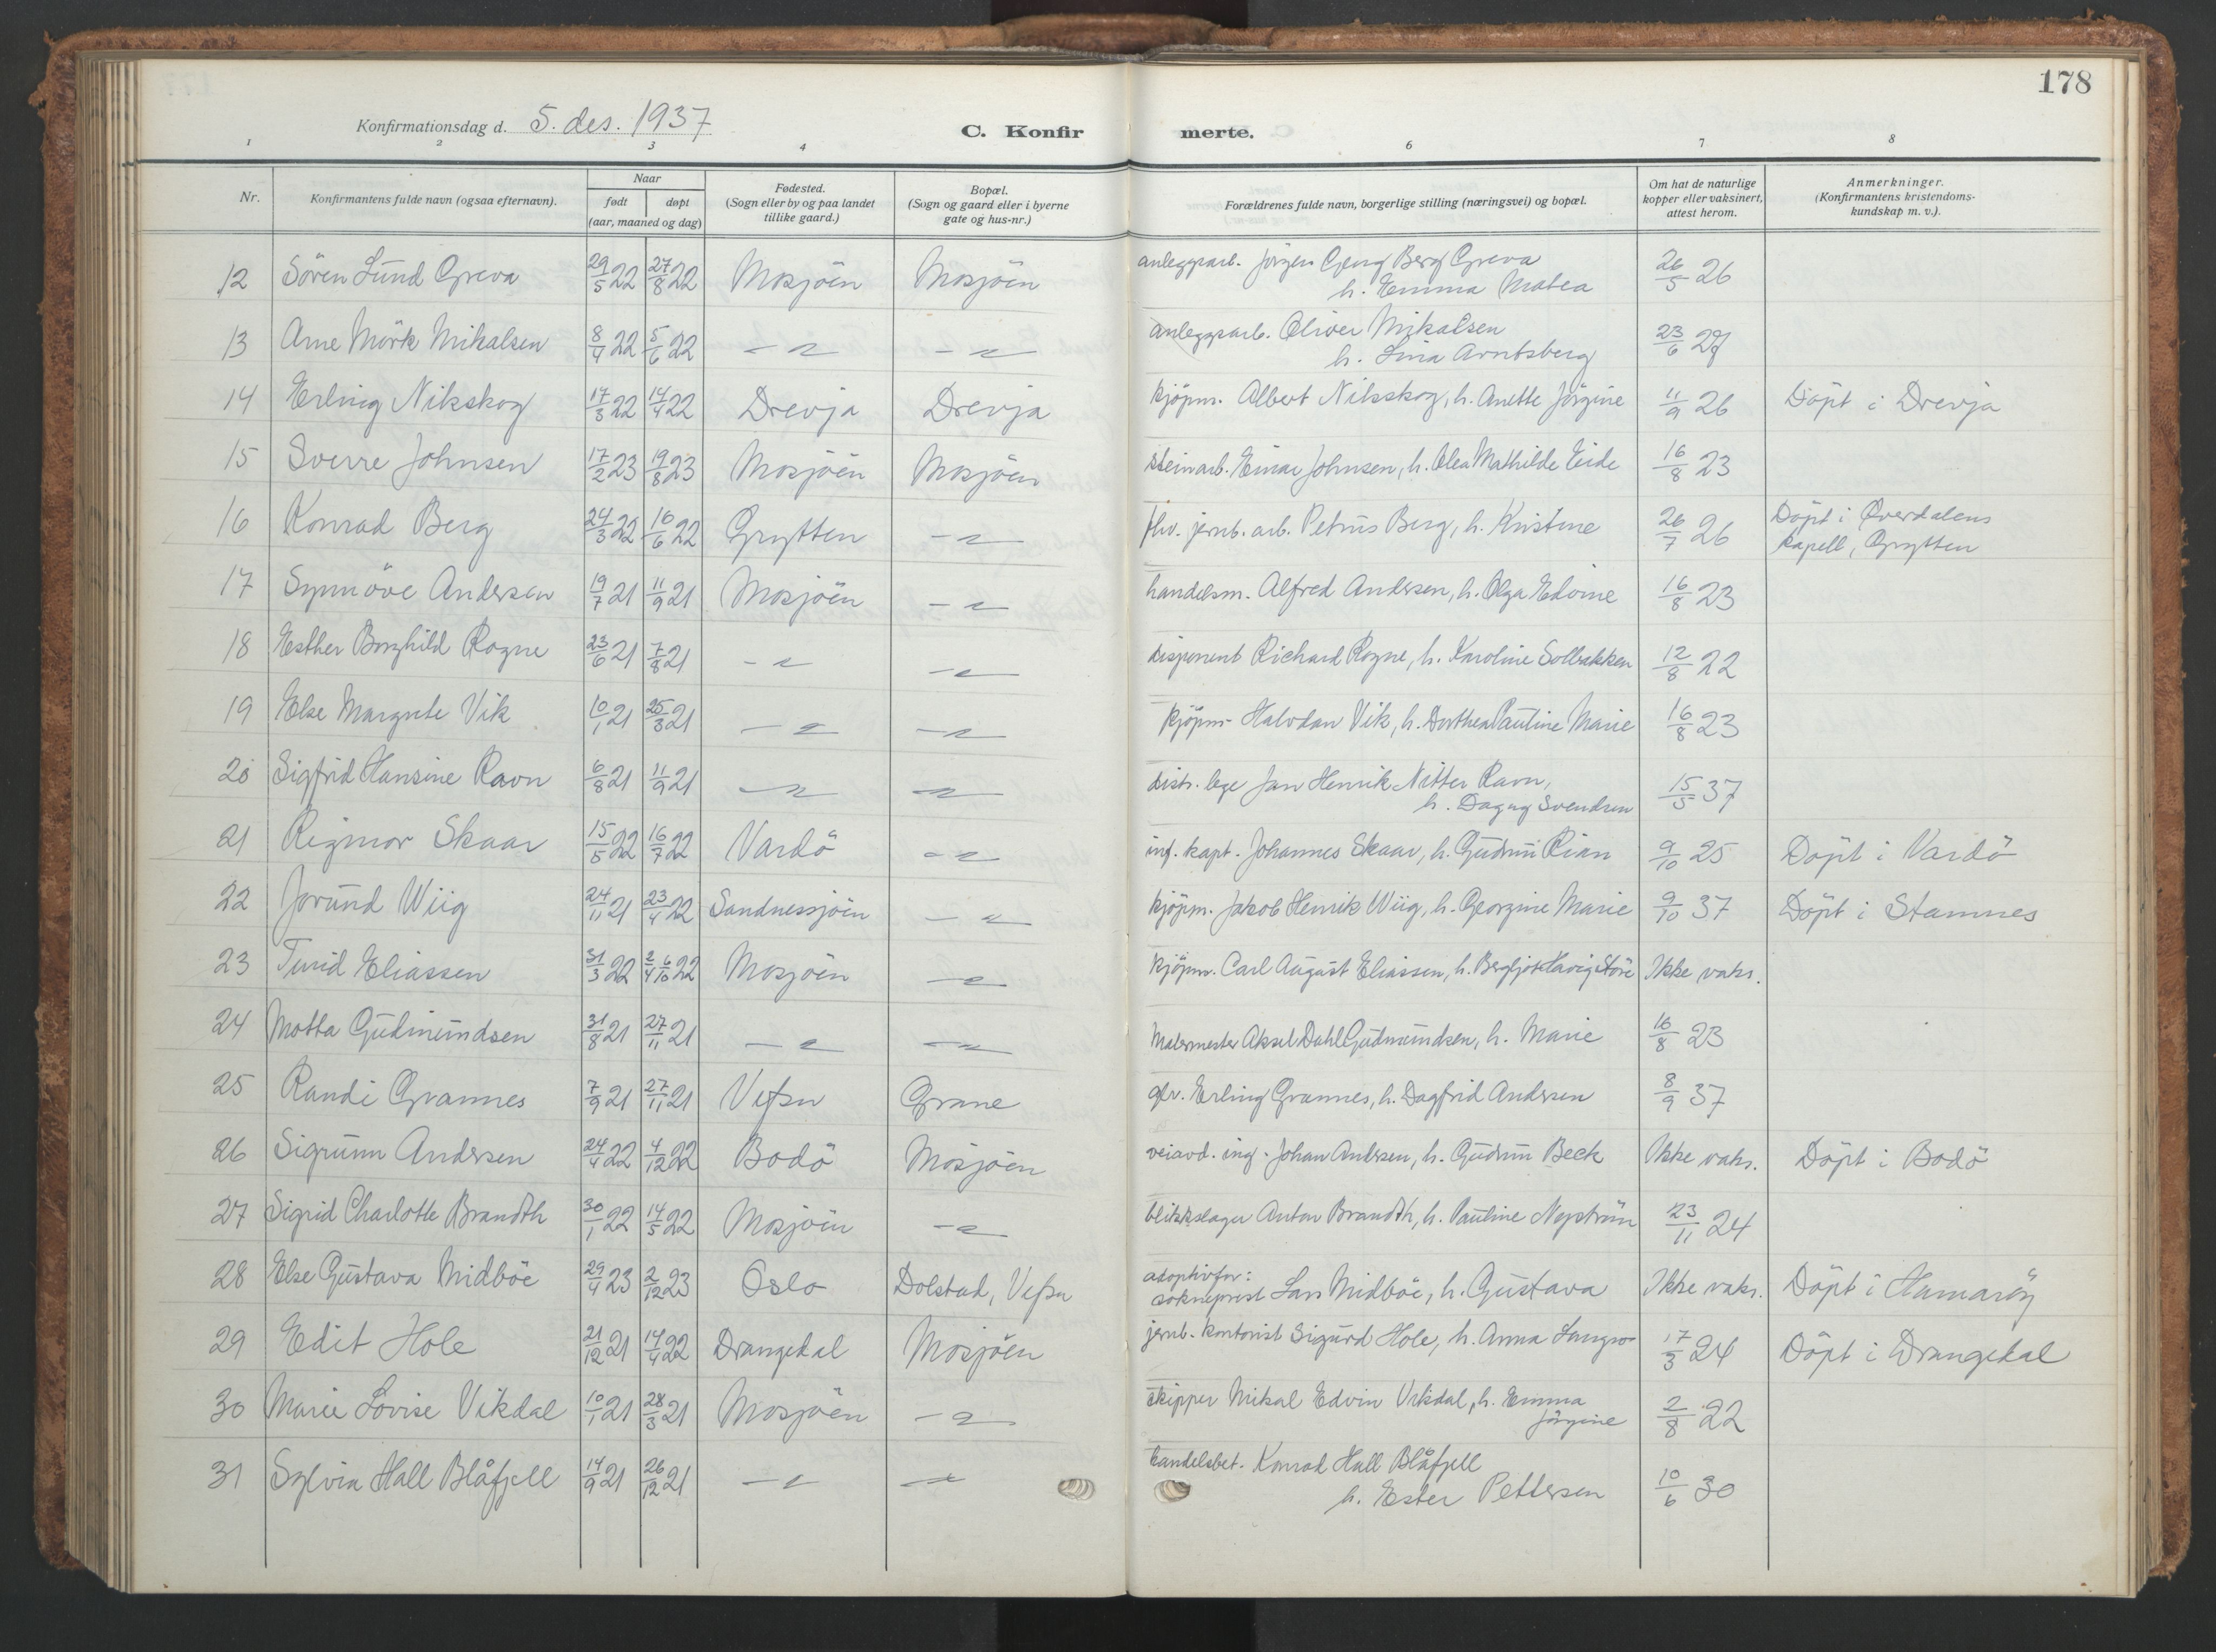 178
Konfirmationsdag d. 5. des. 1937
C. Konfir merte.
1 2 3 4 6 7 8
Nr. Konfirmantens fulde navn (ogsaa efternavn). Naar født døpt (aar, maaned og dag) Fødested. (Sogn eller by og paa landet tillike gaard.) Bopæl. (Sogn og gaard eller i byerne gate og hus-nr.) Forældrenes fulde navn, borgerlige stilling (næringsvei) og bopæl. Om hat de naturlige kopper eller vaksinert, attest herom. Anmerkninger. (Konfirmantens kristendoms-kundskap m. v.).
12 Sören Lund Greva 29/5 22 27/8 22 Mosjöen Mosjöen anleggsarb. Jörgen Georg Berg Greva h. Emma Matea 26/5 26
13 Arne Mörk Mikalsen 8/4 22 5/6 22 -"- -"- anleggsarb. Oliver Mikalsen h. Lina Arntsberg 23/6 27
14 Erling Nilsskog 17/3 22 14/4 22 Drevja Drevja kjöpm. Albert Nilsskog, h. Anette Jörgine 11/9 26 Döpt i Drevja
15 Sverre Johnsen 17/2 23 19/8 23 Mosjöen Mosjöen steinarb. Einar Johnsen, h. Olea Mathilde Eide 16/8 23
16 Konrad Berg 24/3 22 16/6 22 Grytten -"- fhv. jernb. arb. Petrus Berg, h. Kristine 26/7 26 Döpt i Øverdalens kapell, Grytten
17 Synnöve Andersen 19/7 21 11/9 21 Mosjöen -"- handelsm. Alfred Andersen, h. Olga Edvine 16/8 23
18 Esther Borghild Rogne 23/6 21 7/8 21 -"- -"- disponent Richard Rogne, h. Karoline Solbakken 12/8 22
19 Else Margrete Vik 10/1 21 25/3 21 -"- -"- kjöpm. Halvdan Vik, h. Dorthea Pauline Marie 16/8 23
20 Sigfrid Hansine Ravn 6/8 21 11/9 21 -"- -"- distr. lege Jan Henrik Nitter Ravn, h. Dagny Svendsen 15/5 37
21 Rigmor Skaar 15/5 22 16/7 22 Vardö -"- inf. kapt. Johannes Skaar, h. Gudrun Rian 9/10 25 Döpt i Vardö
22 Jorund Wiig 24/11 21 23/4 22 Sandnessjöen -"- kjöpm. Jakob Henrik Wiig, h. Georgine Marie 9/10 37 Döpt i Stamnes
23 Turid Eliassen 31/3 22 2/4 6/10 22 Mosjöen -"- kjöpm. Carl August Eliassen, h. Bergljot Havig Störe Ikke vaks.
24 Motta Gudmundsen 31/8 21 27/11 21 -"- -"- Malermester Aksel Dahl Gudmundsen, h. Marie 16/8 23
25 Randi Grannes 7/9 21 27/11 21 Vefsn Grane gbr. Erling Grannes, h. Dagfrid Andersen 8/9 37
26 Sigrunn Andersen 24/4 22 4/12 22 Bodö Mosjöen veiavd. ing. Johan Andersen, h. Gudrun Beck Ikke vaks. Döpt i Bodö
27 Sigrid Charlotte Brandth 30/1 22 14/5 22 Mosjöen -"- blikkslager Anton Brandth, h. Pauline Nyström 23/11 24
28 Else Gustava Midböe 29/4 23 2/12 23 Oslo Dolstad, Vefsn adoptivfor: sokneprest Lars Midböe, h. Gustava Ikke vaks. Döpt i Hamaröy
29 Edit Hole 21/12 21 14/4 22 Drangedal Mosjöen jernb. kontorist Sigurd Hole, h. Anna 17/3 24 Döpt i Drangedal
30 Marie Lovise Vikdal 10/1 21 28/3 21 Mosjöen -"- skipper Mikal Edvin Vikdal, h. Emma Jörgine 2/8 22
31 Sylvia Hall Blåfjell 14/9 21 26/12 21 -"- -"- handelsbet. Konrad Hall Blåfjell h. Ester Pettersen 10/6 30